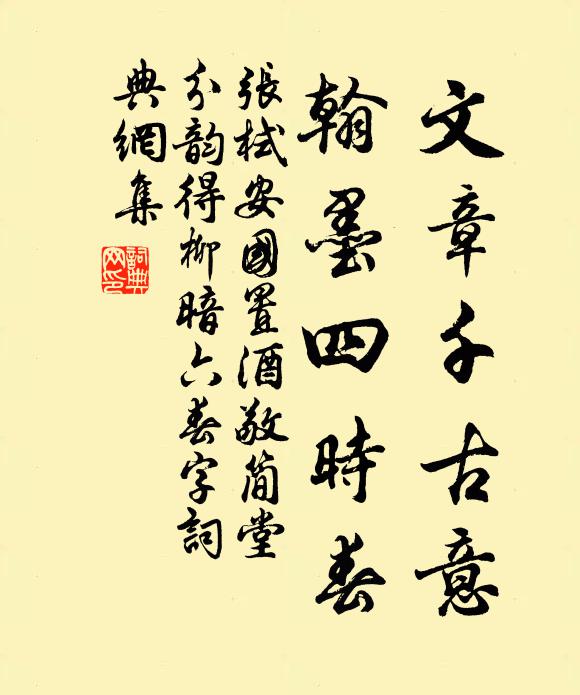 文章千古意
翰墨四時春
張栻安國置酒敬簡堂
分韵得柳暗六春字詞
典網集
詞典網印